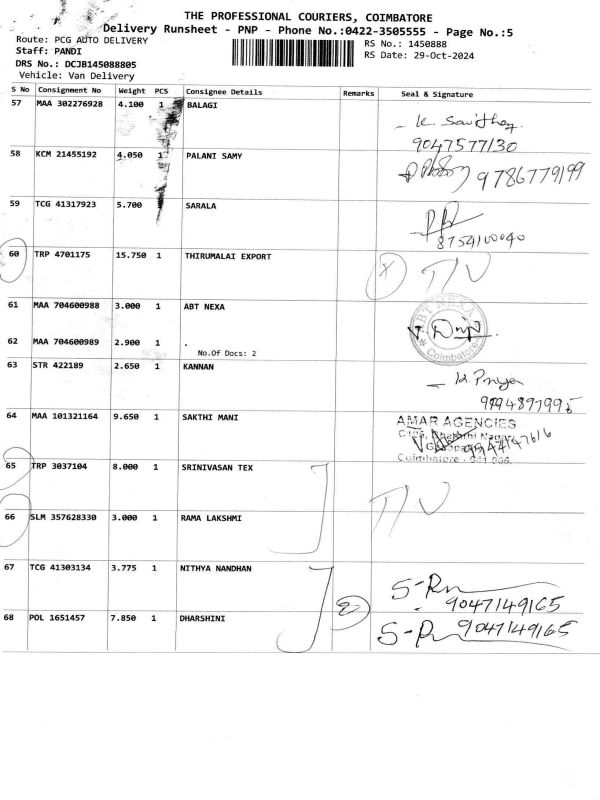 THE PROFESSIONAL COURIERS, COIMBATORE
Delivery Runsheet - PNP - Phone No.:0422-3505555 - Page No.:5
Route: PCG AUTO DELIVERY
RS No.: 1450888
Staff: PANDI
RS Date: 29-Oct-2024
DRS No.: DCJB145088805
Vehicle: Van Delivery
S No Consignment No Weight PCS Consignee Details Remarks Seal & Signature
57 MAA 302276928 4.100 1 BALAGI
9047577130
58 KCM 21455192 4.050 1 PALANI SAMY
9786779199
59 TCG 41317923 5.700 1 SARALA
8754100040
60 TRP 4701175 15.750 1 THIRUMALAI EXPORT
61 MAA 704600988 3.000 1 ABT NEXA
ABT NEXA
Coimbatore
62 MAA 704600989 2.900 1 .
No.Of Docs: 2
63 STR 422189 2.650 1 KANNAN
64 MAA 101321164 9.650 1 SAKTHI MANI
AMAR AGENCIES
65 TRP 3037104 8.000 1 SRINIVASAN TEX
66 SLM 357628330 3.000 1 RAMA LAKSHMI
67 TCG 41303134 3.775 1 NITHYA NANDHAN
9047149165
68 POL 1651457 7.850 1 DHARSHINI
9047149165